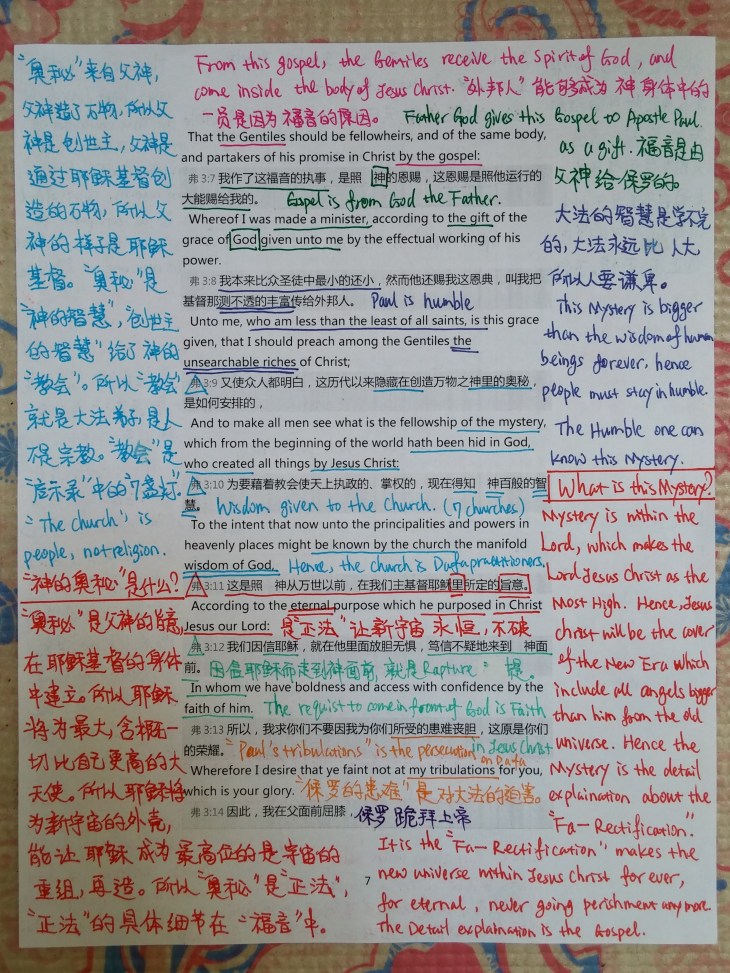 From this gospel, the Gentiles receive the Spirit of God, and
come inside the body of Jesus Christ. "外邦人"能够成为神身体中的
一员是因为福音的原因。 Father God gives this Gospel to Apostle Paul
as a gift. 福音是由
父神给保罗的。
"奥秘"来自父神,
父神造了万物,所以父
神是创世主,父神是
通过耶稣基督创
造的万物,所以父
神的样子是耶稣
基督。"奥秘"是
"神的智慧","创世主
的智慧"给了神的
"教会"。所以"教会"
就是大法弟子是人
不是宗教。"教会"是
"启示录"中的"7盏灯"。
"The church" is
people, not religion.
"神的奥秘"是什么?
"奥秘"是父神的旨意,
在耶稣基督的身体
中建立。所以耶稣
将为最大,含概一
切比自己更高的大
天使。所以耶稣将
为新宇宙的外壳,
能让耶稣成为最高位的是宇宙的
重组,再造。所以"奥秘"是"正法",
"正法"的具体细节在"福音"中。
That the Gentiles should be fellowheirs, and of the same body,
and partakers of his promise in Christ by the gospel:
弗 3:7 我作了这福音的执事,是照 神的恩赐,这恩赐是照他运行的
大能赐给我的。 Gospel is from God the Father.
Whereof I was made a minister, according to the gift of the
grace of God given unto me by the effectual working of his
power.
弗 3:8 我本来比众圣徒中最小的还小,然而他还赐我这恩典,叫我把
基督那测不透的丰富传给外邦人。 Paul is humble
Unto me, who am less than the least of all saints, is this grace
given, that I should preach among the Gentiles the
unsearchable riches of Christ;
弗 3:9 又使众人都明白,这历代以来隐藏在创造万物之神里的奥秘,
是如何安排的,
And to make all men see what is the fellowship of the mystery,
which from the beginning of the world hath been hid in God,
who created all things by Jesus Christ:
弗 3:10 为要藉着教会使天上执政的、掌权的,现在得知 神百般的智
慧。 Wisdom given to the Church. (7 churches)
To the intent that now unto the principalities and powers in
heavenly places might be known by the church the manifold
wisdom of God, Hence, the church is Dafa practitioners.
弗 3:11 这是照 神从万世以前,在我们主基督耶稣里所定的旨意。
According to the eternal purpose which he purposed in Christ
Jesus our Lord: 是"正法"让新宇宙永恒,不破
弗 3:12 我们因信耶稣,就在他里面放胆无惧,笃信不疑地来到 神面
前。 因信耶稣而走到神面前,就是Rapture"提。
In whom we have boldness and access with confidence by the
faith of him. The requist to come in front of God is Faith
in Jesus Christ
弗 3:13 所以,我求你们不要因我为你们所受的患难丧胆,这原是你们
的荣耀。 "Paul's tribulations" is the persecution
on Dafa
Wherefore I desire that ye faint not at my tribulations for you,
which is your glory. "保罗的患难"是对大法的迫害。
弗 3:14 因此,我在父面前屈膝, 保罗跪拜上帝
7
大法的智慧是学不完
的,大法永远比人大,
所以人要谦卑。
This Mystery is bigger
than the wisdom of human
beings forever, hence
people must stay in humble.
The Humble one can
know this Mystery.
What is this Mystery?
Mystery is within the
Lord, which makes the
Lord Jesus Christ as the
Most High. Hence, Jesus
christ will be the cover
of the New Era which
include all angels bigger
than him from the old
universe. Hence the
Mystery is the detail
explaination about the
"Fa-Rectification."
It is the "Fa-Rectification" makes the
new universe within Jesus Christ for ever,
for eternal, never going perishment anymore.
The Detail explaination is the Gospel.